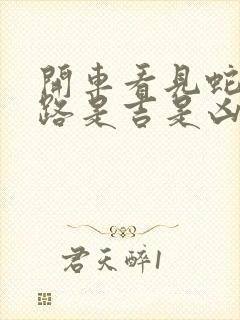 開車看見蛇
路是吉是凶
君天醉1